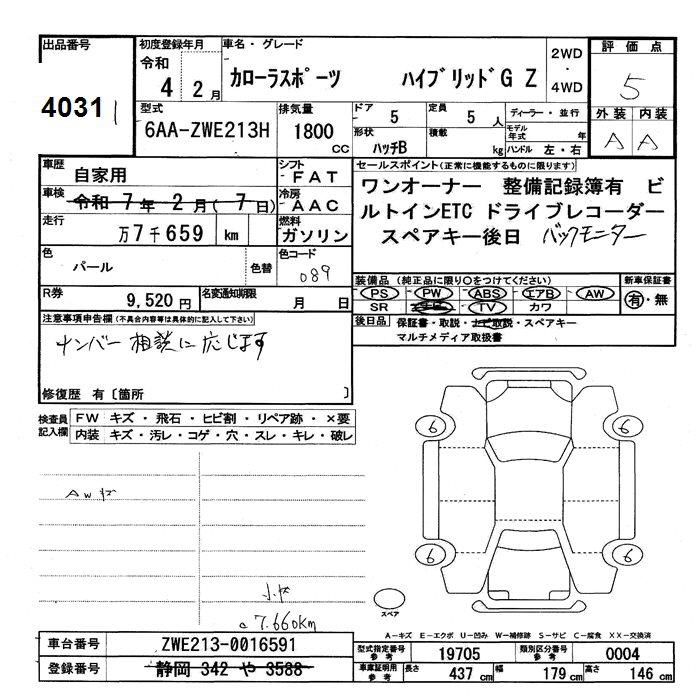 出品番号 初度登録年月 車名・グレード 2WD・4WD 評価点
4031 令和 4 2月 カローラスポーツ ハイブリッドG Z 5
型式 排気量 ドア 5 定員 5人 ディーラー・並行 外装 内装
6AA-ZWE213H 1800 CC 形状 ハッチB 積載 kg モデル年式 年 ハンドル 左・右 A A
車歴 自家用 シフト FAT セールスポイント(正常に機能するものに限ります)
車検 令和 7年 2月( 7日) 冷房 AAC ワンオーナー 整備記録簿有 ビ
走行 万7千659 km 燃料 ガソリン ルトインETC ドライブレコーダー
色 パール 色替 色コード 089 スペアキー後日 バックモニター
装備品 (純正品に限り○をつけてください) 新車保証書
R券 9,520円 名変通知期限 月 日 PS PW ABS エアB AW 有・無
SR TV カワ
注意事項申告欄(不具合内容等は具体的に記入して下さい) 後日品 保証書・取説・ナビ取説・スペアキー
マルチメディア取扱書
ナンバー 相談に応じます
修復歴 有〔箇所 〕
検査員記入欄 FW キズ・飛石・ヒビ割・リペア跡・×要
内装 キズ・汚レ・コゲ・穴・スレ・キレ・破レ
6 6
AWキズ
6 6
小キズ
スペア
7.660KM
A-キズ E-エクボ U-凹み W-補修跡 S-サビ C-腐食 XX-交換済
車台番号 ZWE213-0016591 型式指定番号 参考 19705 類別区分番号 参考 0004
登録番号 静岡 342 や 3588 車庫証明用 参考 長さ 437 cm 幅 179 cm 高さ 146 cm